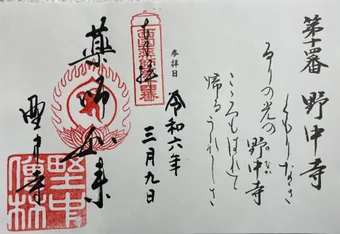 第十四番 野中寺
くもりなき
のりの光の野中寺
こころもはれて
帰るうれしさ
参拝日
令和六年
三月九日
奉拝
西国薬師第十四番
薬師如来
野中寺
野中
僧林